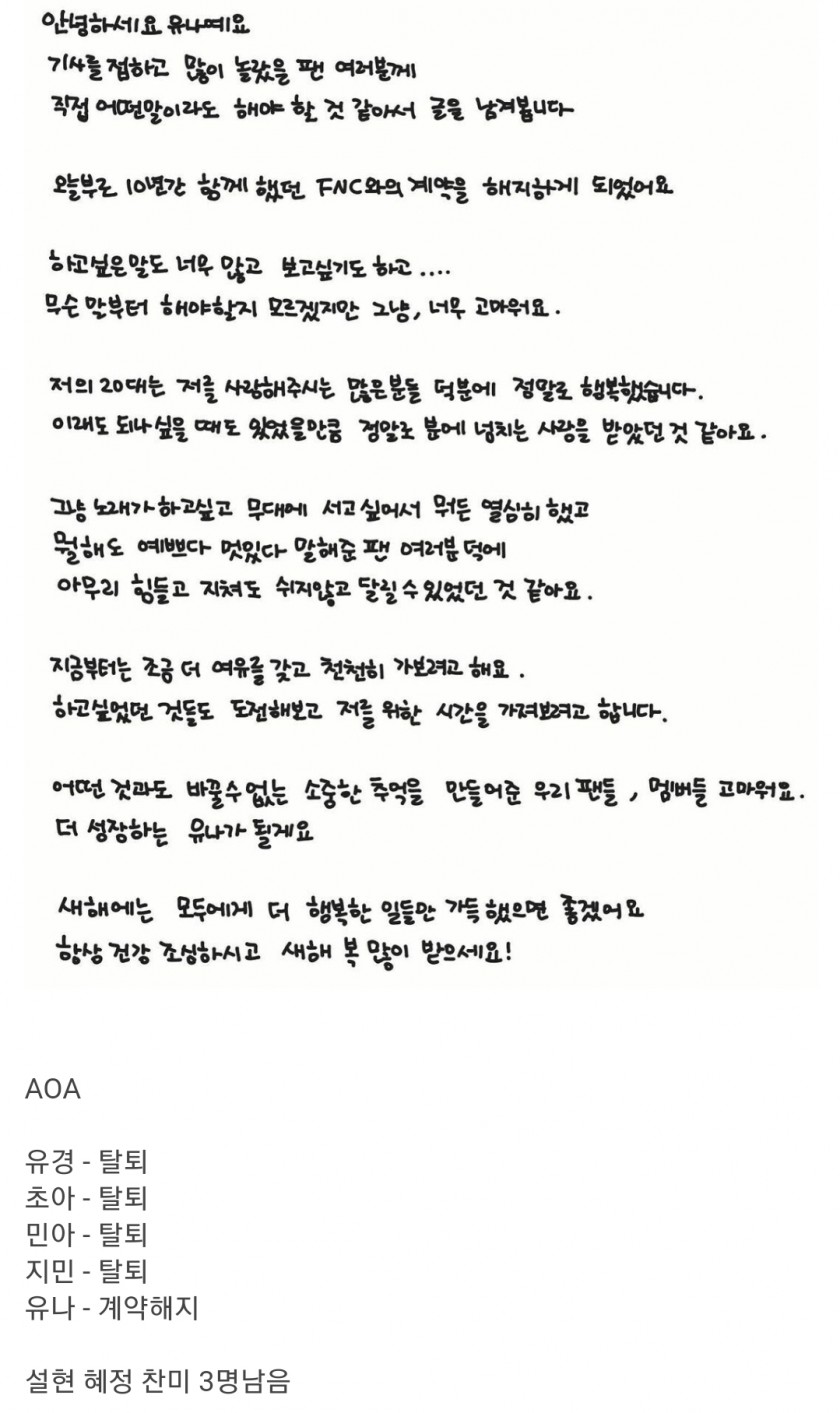 안녕하세요 유나예요
기사를 접하고 많이 놀랐을 팬 여러분께
직접 어떤말이라도 해야 할 것 같아서 글을 남겨봅니다
오늘부로 10년간 함께 했던 FNC와의 계약을 해지하게 되었어요
하고싶은말도 너무 많고 보고싶기도 하고....
무슨 말부터 해야할지 모르겠지만 그냥, 너무 고마워요.
저의 20대는 저를 사랑해주시는 많은분들 덕분에 정말로 행복했습니다.
이래도 되나싶을 때도 있었을만큼 정말로 분에 넘치는 사랑을 받았던 것 같아요.
그냥 노래가하고싶고 무대에 서고싶어서 뭐든 열심히 했고
뭘해도 예쁘다 멋있다 말해준 팬 여러분 덕에
아무리 힘들고 지쳐도 쉬지않고 달릴수있었던 것 같아요.
지금부터는 조금 더 여유를 갖고 천천히 가보려고 해요.
하고싶었던 것들도 도전해보고 저를 위한 시간을 가져보려고 합니다.
어떤 것과도 바꿀수없는 소중한 추억을 만들어준 우리 팬들, 멤버들 고마워요.
더 성장하는 유나가 될게요
새해에는 모두에게 더 행복한 일들만 가득했으면 좋겠어요
항상 건강 조심하시고 새해 복 많이 받으세요!
AOA
유경 - 탈퇴
초아 - 탈퇴
민아 - 탈퇴
지민 - 탈퇴
유나 - 계약해지
설현 혜정 찬미 3명남음